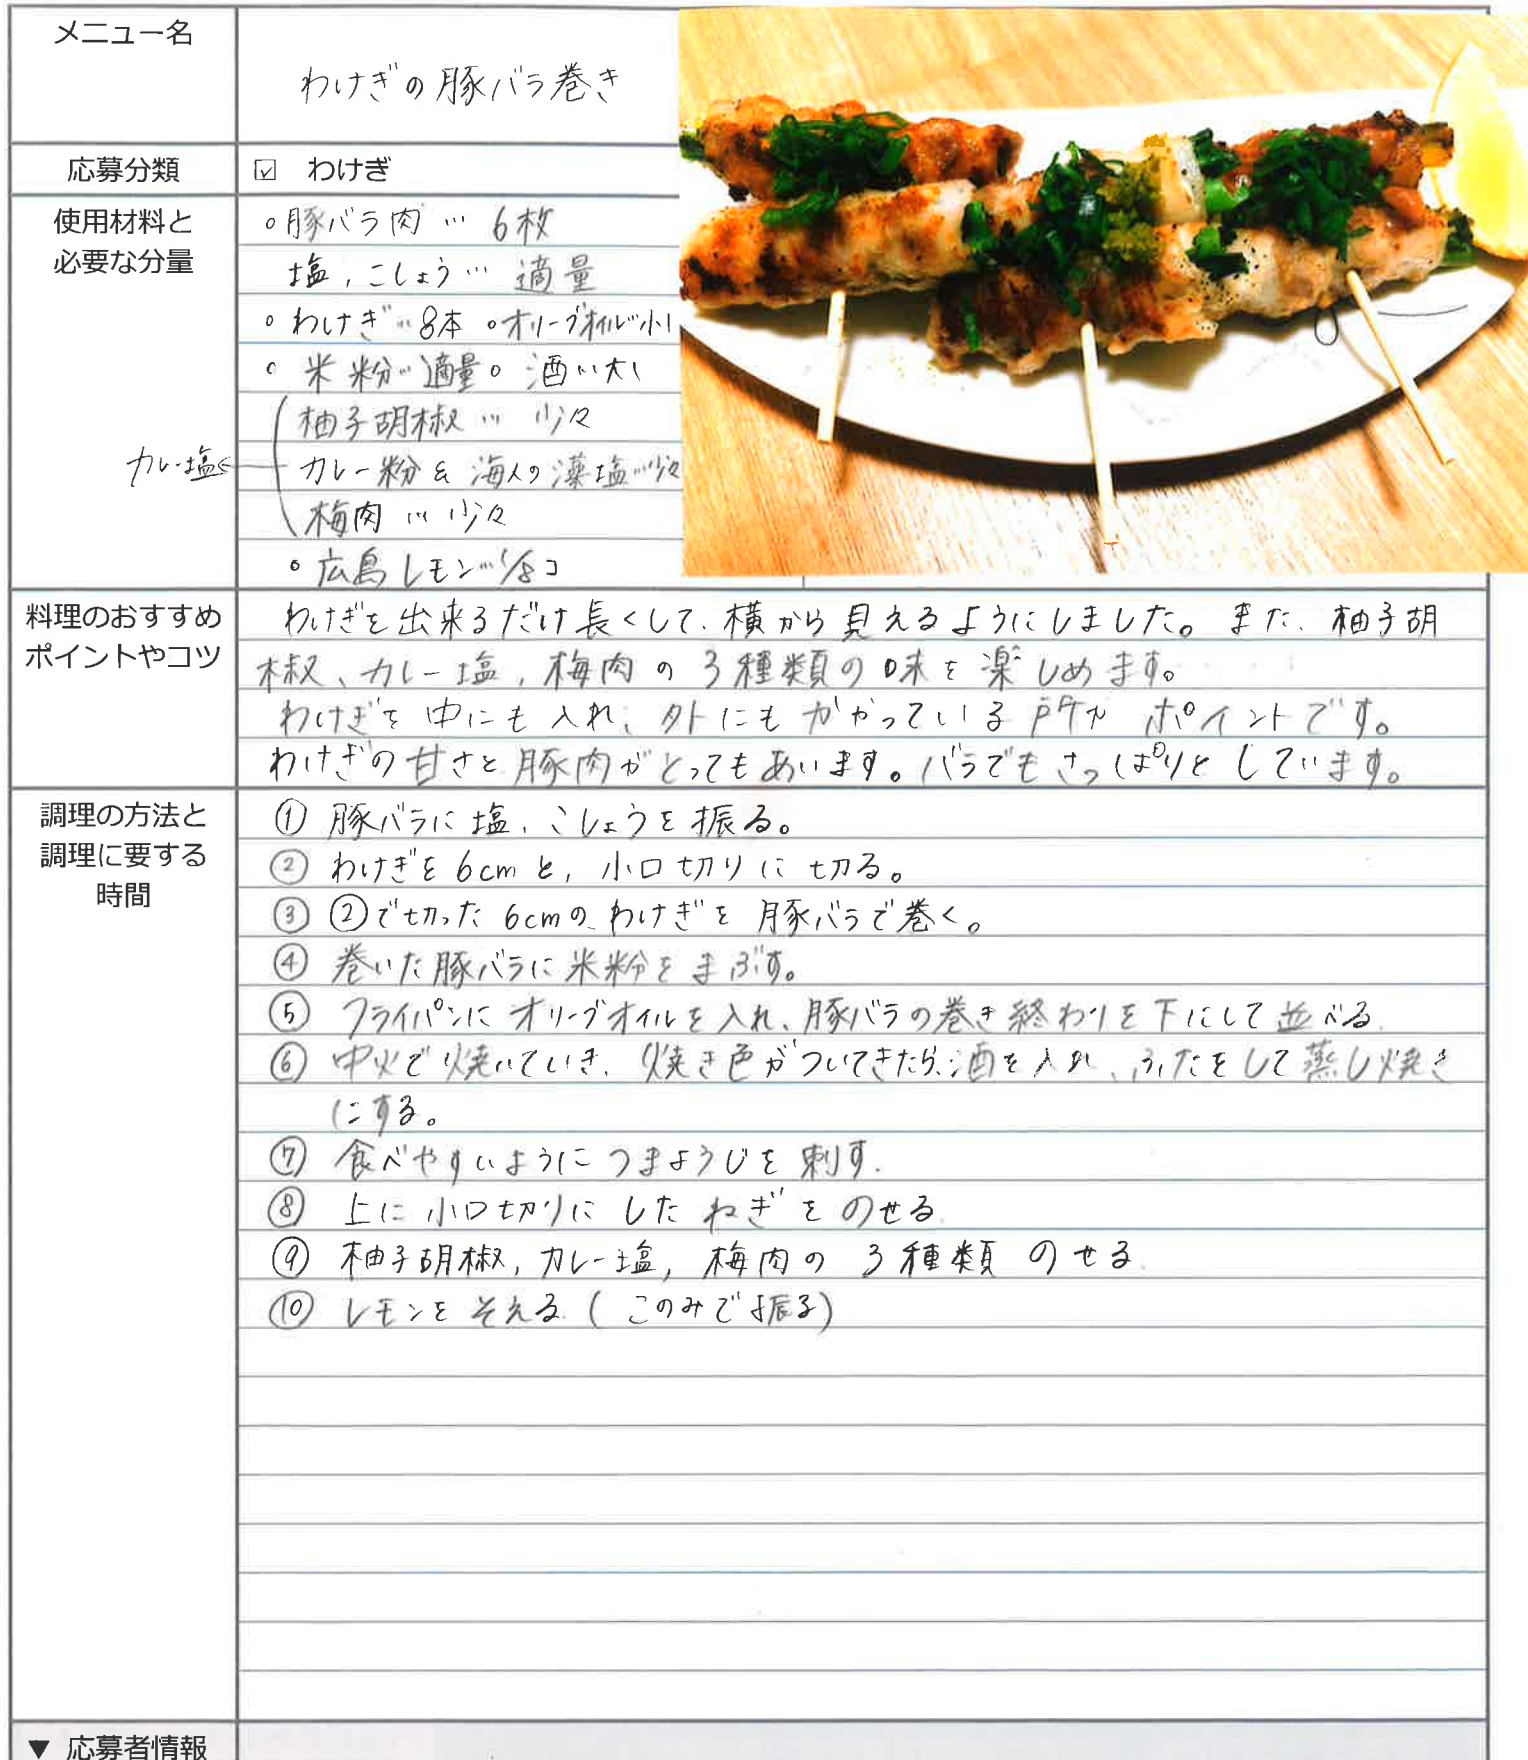 メニュー名
わけぎの豚バラ巻き
応募分類
☑ わけぎ
使用材料と
必要な分量
○豚バラ肉 … 6枚
塩,こしょう… 適量
○わけぎ…8本 ○オリーブオイル…小1
○米粉…適量○酒…大1
柚子胡椒 … 少々
カレー塩
カレー粉 & 海人の藻塩…少々
梅肉 … 少々
○広島レモン…1/8コ
料理のおすすめ
ポイントやコツ
わけぎを出来るだけ長くして、横から見えるようにしました。また、柚子胡
椒、カレー塩,梅肉の3種類の味を楽しめます。
わけぎを中にも入れ、外にもかかっている所が ポイントです。
わけぎの甘さと豚肉がとってもあいます。バラでもさっぱりとしています。
調理の方法と
調理に要する
時間
① 豚バラに塩,こしょうを振る。
② わけぎを6cmと,小口切りに切る。
③ ②で切った6cmのわけぎを豚バラで巻く。
④ 巻いた豚バラに米粉をまぶす。
⑤ フライパンにオリーブオイルを入れ、豚バラの巻き終わりを下にして並べる.
⑥ 中火で焼いていき、焼き色がついてきたら、酒を入れ、ふたをして蒸し焼き
にする。
⑦ 食べやすいようにつまようじを刺す.
⑧ 上に小口切りにしたねぎをのせる.
⑨ 柚子胡椒,カレー塩,梅肉の3種類のせる.
⑩ レモンをそえる.(このみで振る)
▼ 応募者情報